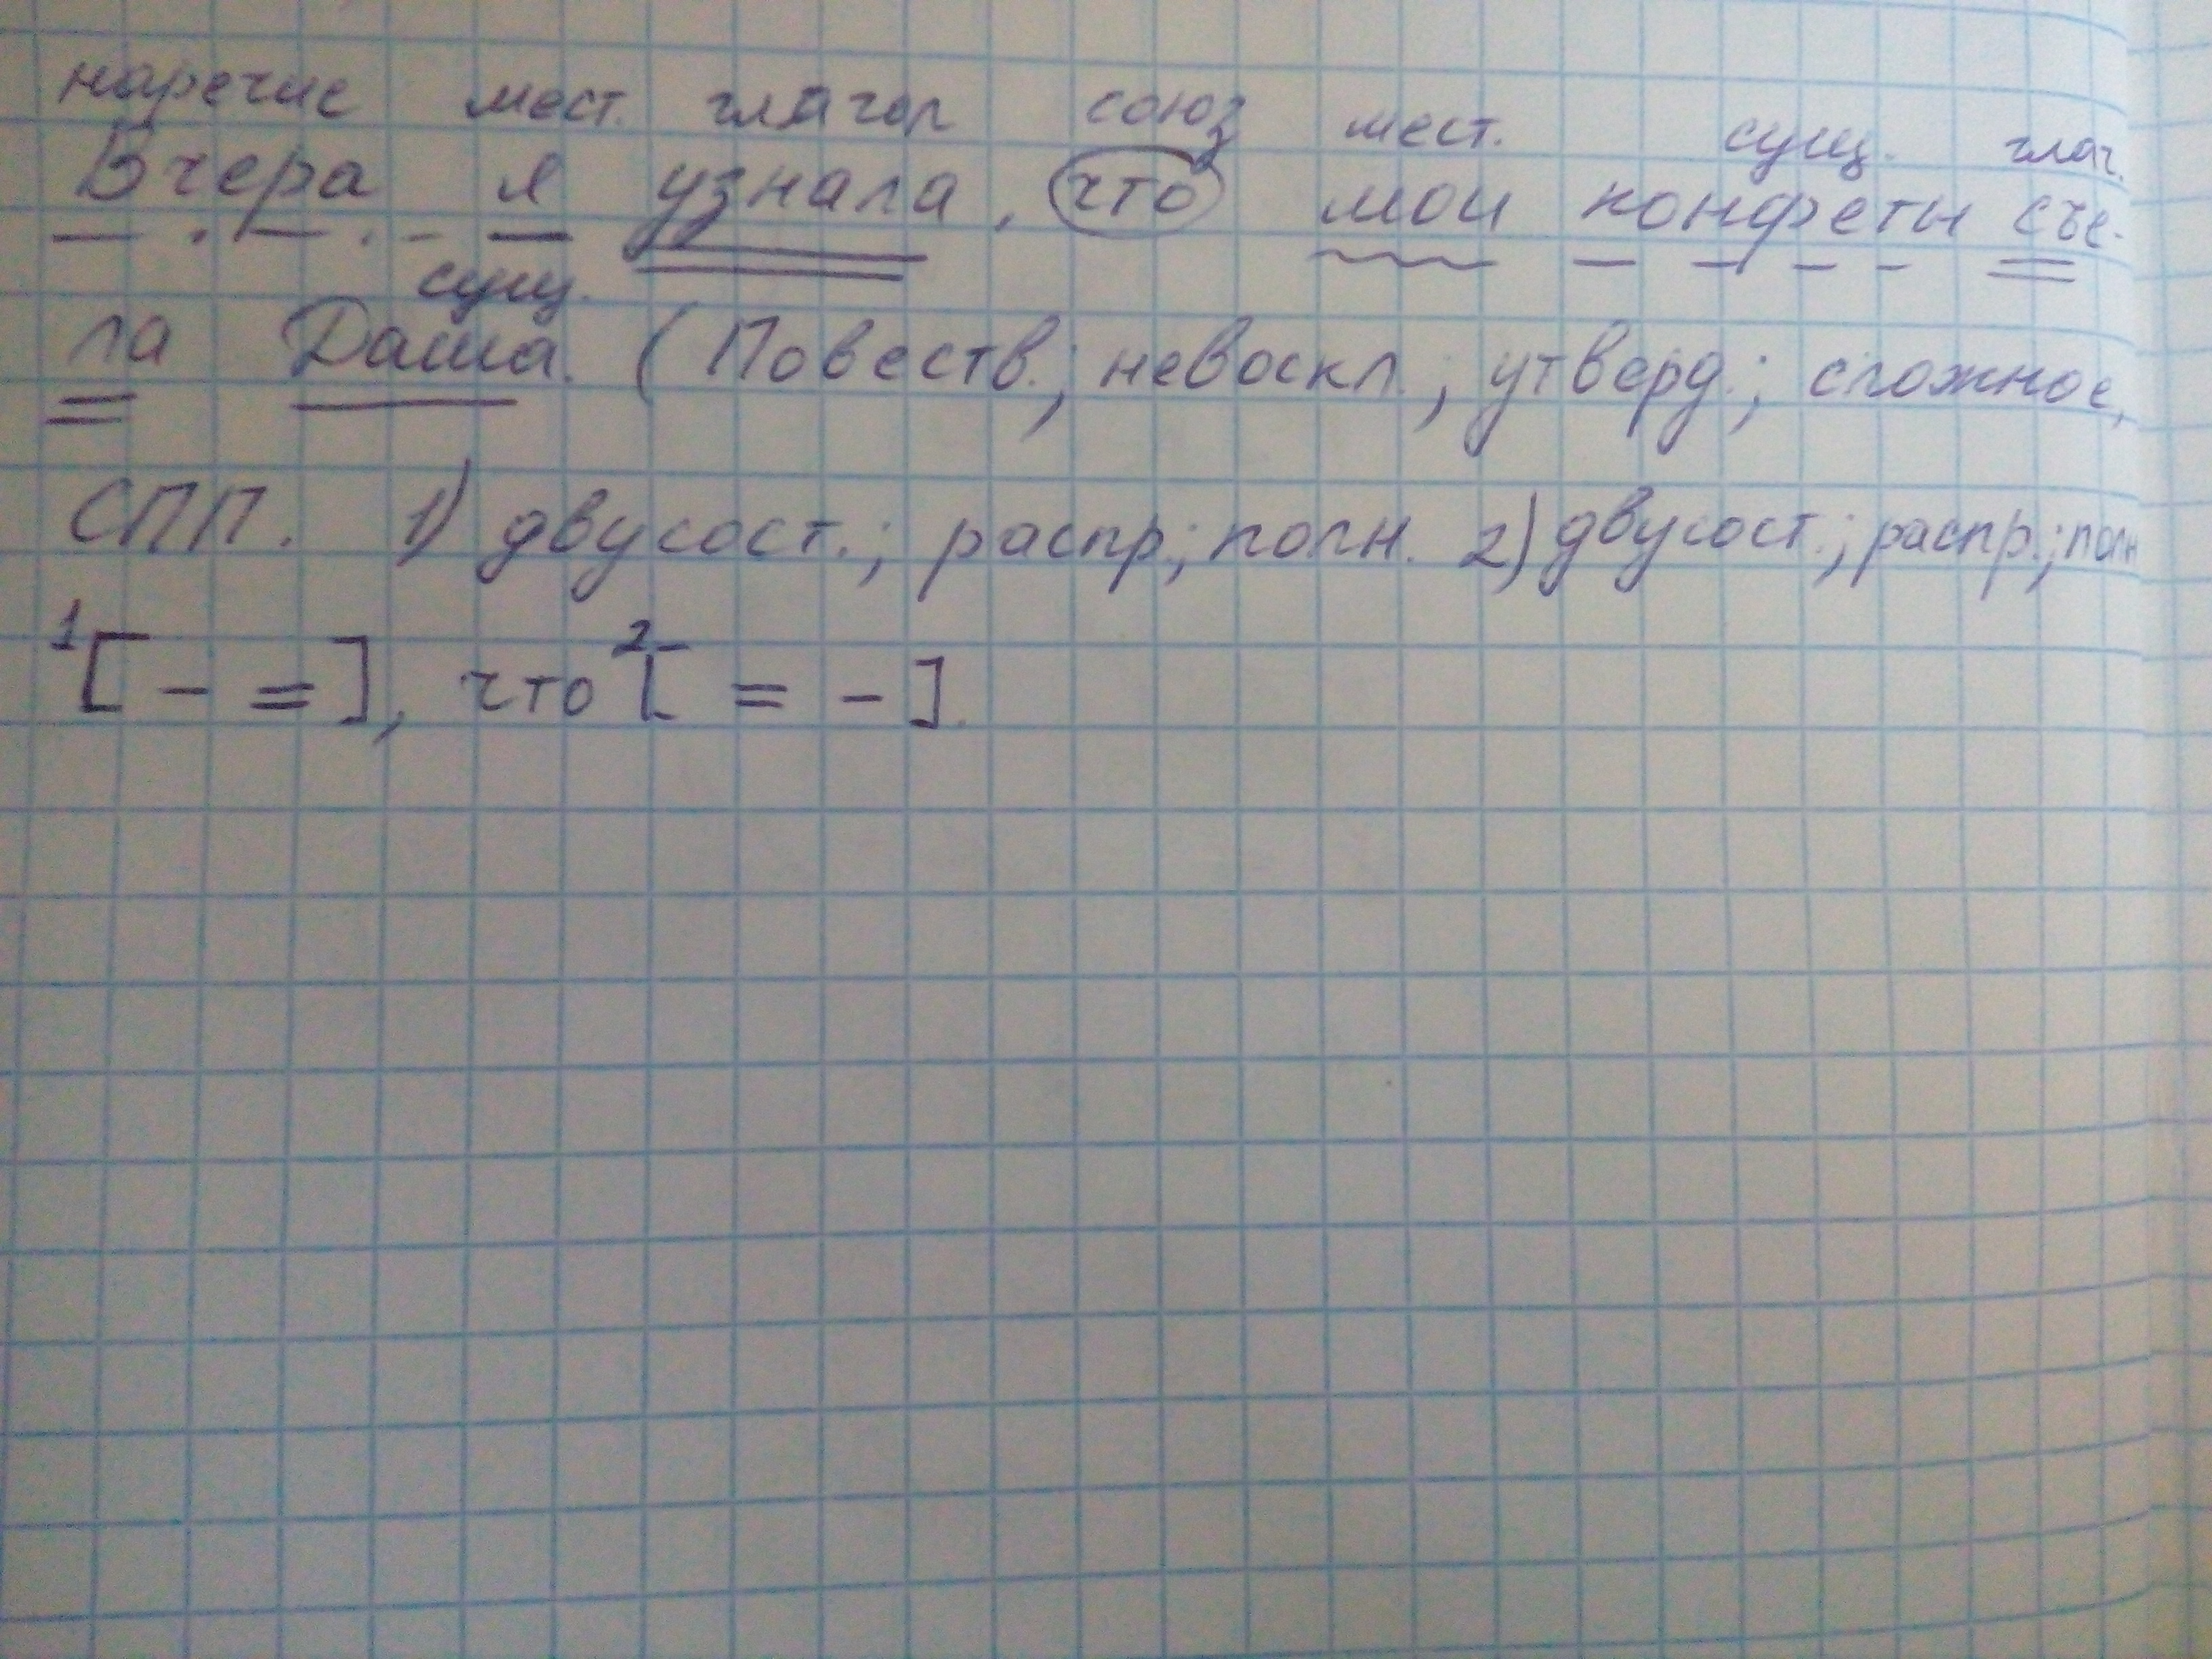 наречие мест. глагол союз мест. сущ. глаг.
Вчера я узнала, что мои конфеты съе-
сущ.
ла Даша. (Повеств.; невоскл.; утверд.; сложное,
СПП. 1) двусост.; распр.; полн. 2) двусост.; распр.; полн
1[ - = ], что 2[ = - ].